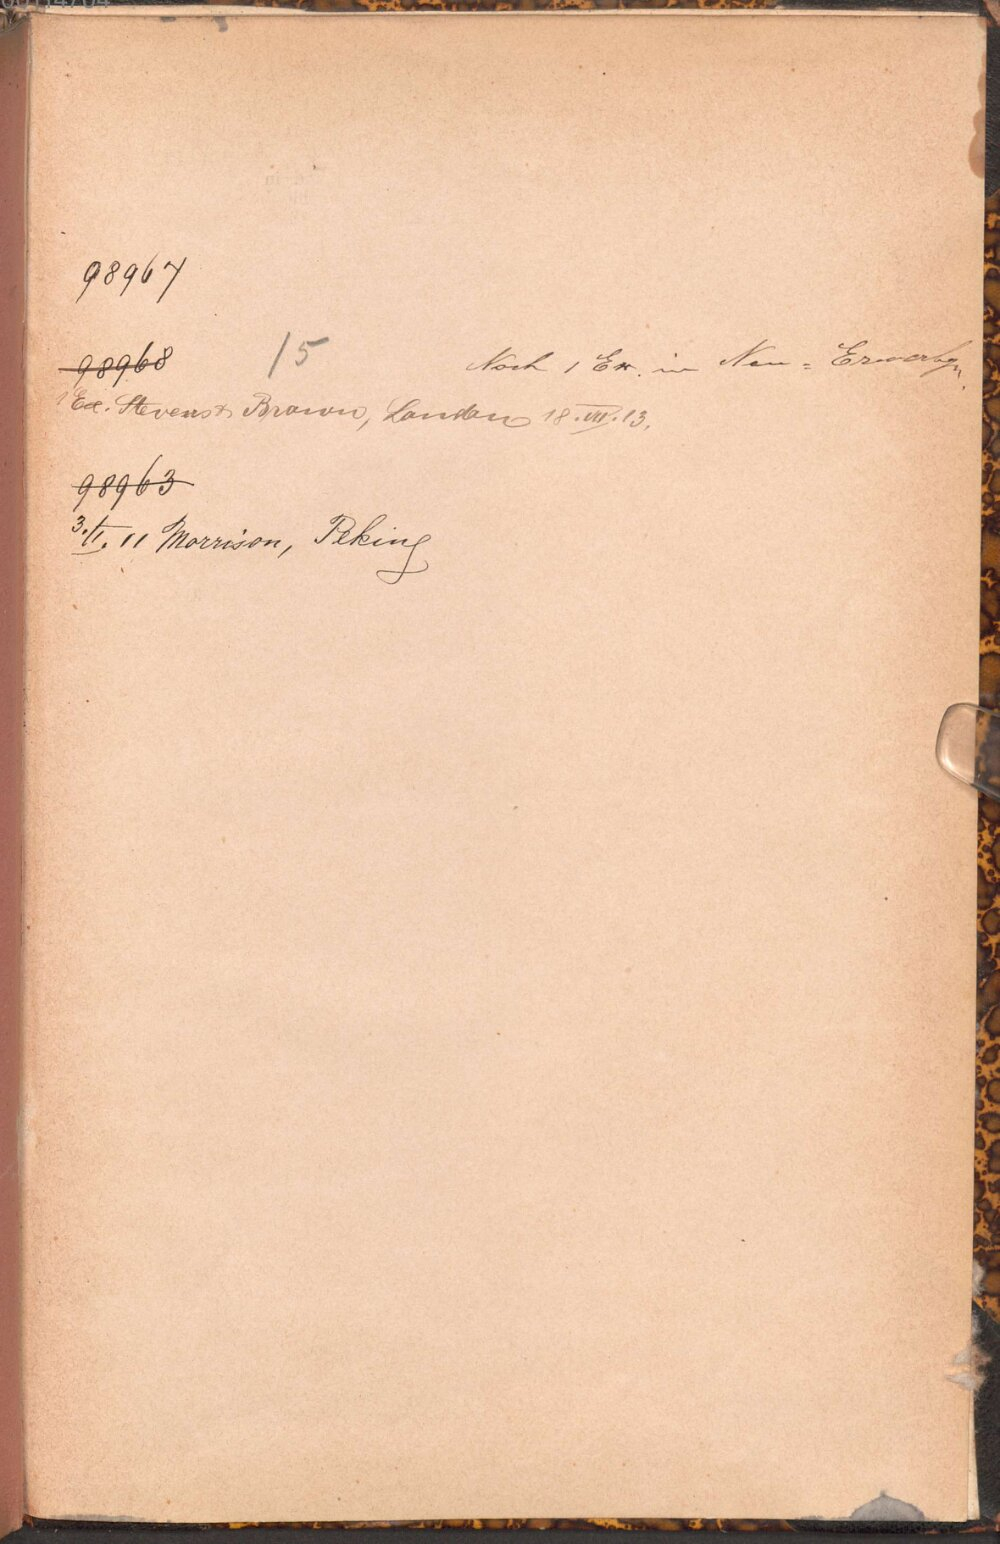 98967
98968 15 Noch 1 Ex. in Neu = Erwerbgn.
1 Ex. Stevens & Brown, London 18.VII.13.
98963
3.I.11 Morrison, Peking